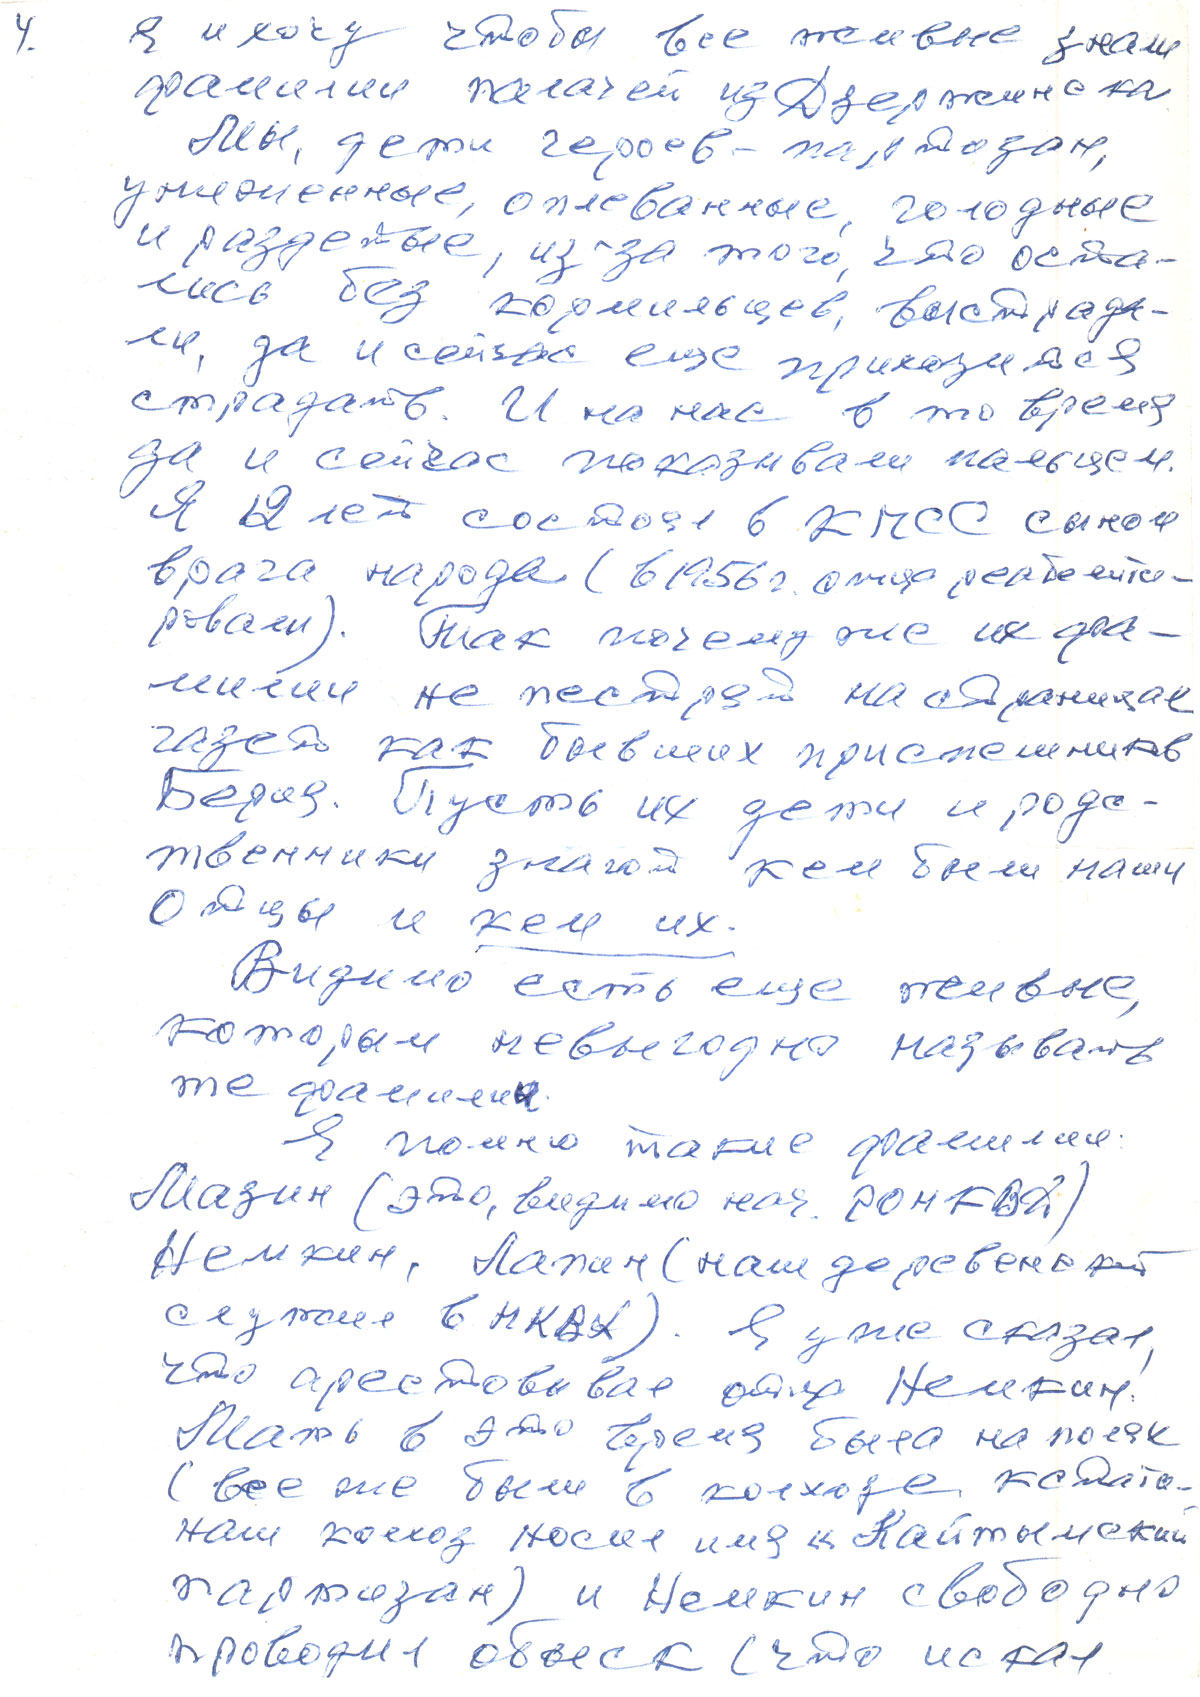 4. Я и хочу чтобы все живые знали
фамилии палачей из Дзержинска
Мы, дети героев-партизан,
униженные, оплеванные, голодные
и раздетые, из-за того, что оста-
лись без кормильцев, выстрада-
ли, да и сейчас еще приходится
страдать. И на нас в то время
да и сейчас показывали пальцем.
Я 12 лет состоял в КПСС сыном
врага народа (в 1956 г. отца реабилити-
ровали). Так почему же их фа-
милии не пестрят на страницах
газет как бывших приспешников
Берия. Пусть их дети и родс-
твенники знают кем были наши
Отцы и кем их.
Видимо есть еще живые,
которым невыгодно называть
те фамилии.
Я помню такие фамилии:
Мазин (это, видимо нач. РОНКВД)
Немкин, Лапин (наш деревенский
служил в НКВД). Я уже сказал,
что арестовывал отца Немкин.
Мать в это время была на полях
(все же были в колхозе, кстати-
наш колхоз носил имя "Кайтымский
партизан) и Немкин свободно
проводил обыск (что искал